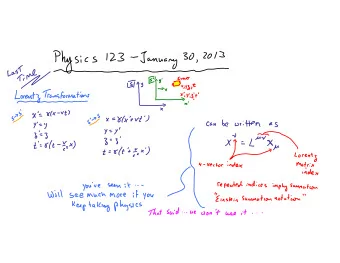 Physics 123 – January 30, 2013
Last Time
Lorentz Transformations
S→S'
x' = γ(x-vt)
y' = y
z' = z
t' = γ(t - v/c² x)
S'→S
x = γ(x'+vt')
y = y'
z = z'
t = γ(t' + v/c² x')
S y
S' y'
x
x'
event
can be written as
x^ν = L^{μν} x_μ
4-vector index
Lorentz
matrix
index
repeated indices imply summation
"Einstein summation notation"
you've seen it ...
Will see much more if you
keep taking physics
That said – we won't use it ....